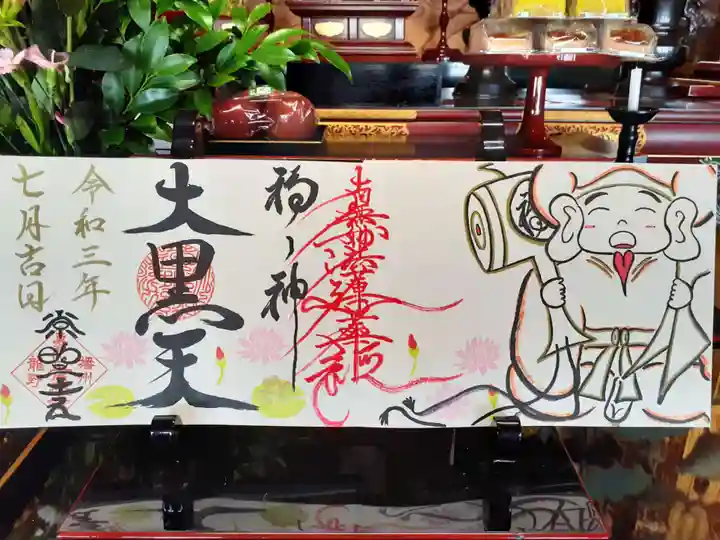 南無妙法蓮華経
福ノ神
大黒天
令和三年
七月吉日
常照寺
播州
龍野
福